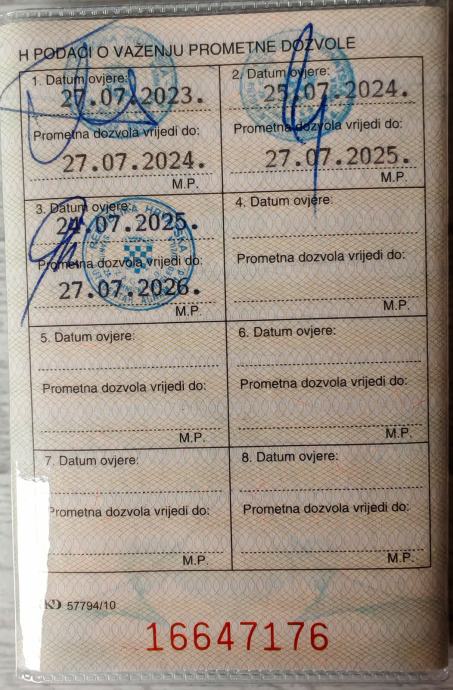 H PODACI O VAŽENJU PROMETNE DOZVOLE
1. Datum ovjere:
27.07.2023.
Prometna dozvola vrijedi do:
27.07.2024.
M.P.
2. Datum ovjere:
25.07.2024.
Prometna dozvola vrijedi do:
27.07.2025.
M.P.
3. Datum ovjere:
24.07.2025.
Prometna dozvola vrijedi do:
27.07.2026.
M.P.
4. Datum ovjere:
Prometna dozvola vrijedi do:
M.P.
5. Datum ovjere:
Prometna dozvola vrijedi do:
M.P.
6. Datum ovjere:
Prometna dozvola vrijedi do:
M.P.
7. Datum ovjere:
Prometna dozvola vrijedi do:
M.P.
8. Datum ovjere:
Prometna dozvola vrijedi do:
M.P.
57794/10
16647176